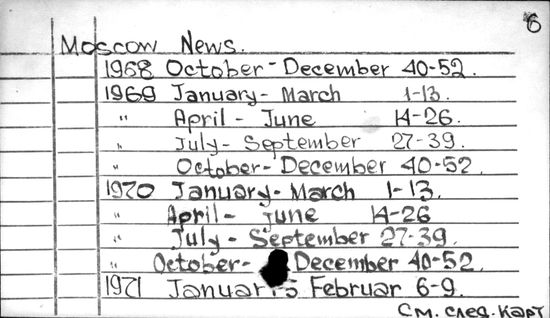 6
Moscow News.
1968 October - December 40-52.
1969 January - March 1-13.
" April - June 14-26.
" July - September 27-39.
" October - December 40-52.
1970 January - March 1-13.
" April - june 14-26
" July - September 27-39.
" October - December 40-52.
1971 Februar 6-9.
См. след. карт